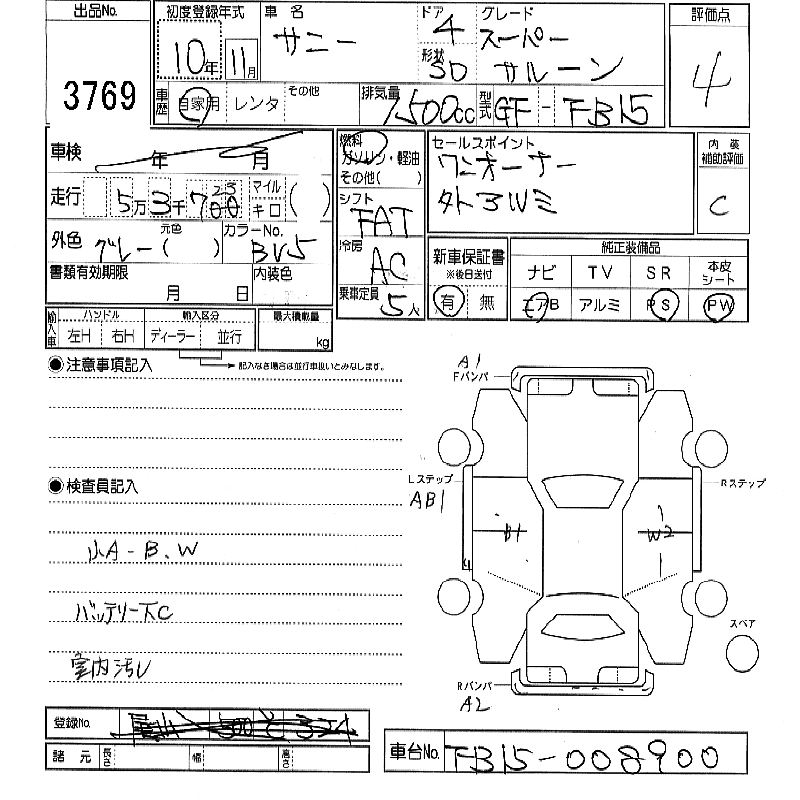 出品No. 初度登録年式 車名 ドア グレード 評価点
3769 10年 11月 サニー 4 スーパー サルーン 4
形状 SD
車歴 自家用 レンタ その他 排気量 1500cc 型式 GF - FB15
車検 年 月 燃料 ガソリン・軽油 その他( ) セールスポイント 内装補助評価
ワンオーナー
外アルミ C
走行 5万3千700 マイル キロ ( ) シフト FAT
外色 グレー 元色 ( ) カラーNo. BV5 冷房 AC 新車保証書 純正装備品
※後日送付 ナビ TV SR 本皮シート
書類有効期限 月 日 内装色 乗車定員 5人 有 無 エアB アルミ PS PW
輸入車 ハンドル 輸入区分 最大積載量
左H 右H ディーラー 並行 kg
●注意事項記入 記入なき場合は並行車扱いとみなします。
A1
Fバンパ
Lステップ Rステップ
AB1
●検査員記入
B1 W2
小A-B.W
バッテリー下C
スペア
室内汚レ
Rバンパ
A2
登録No.
諸元 長さ 幅 高さ 車台No. FB15-008900